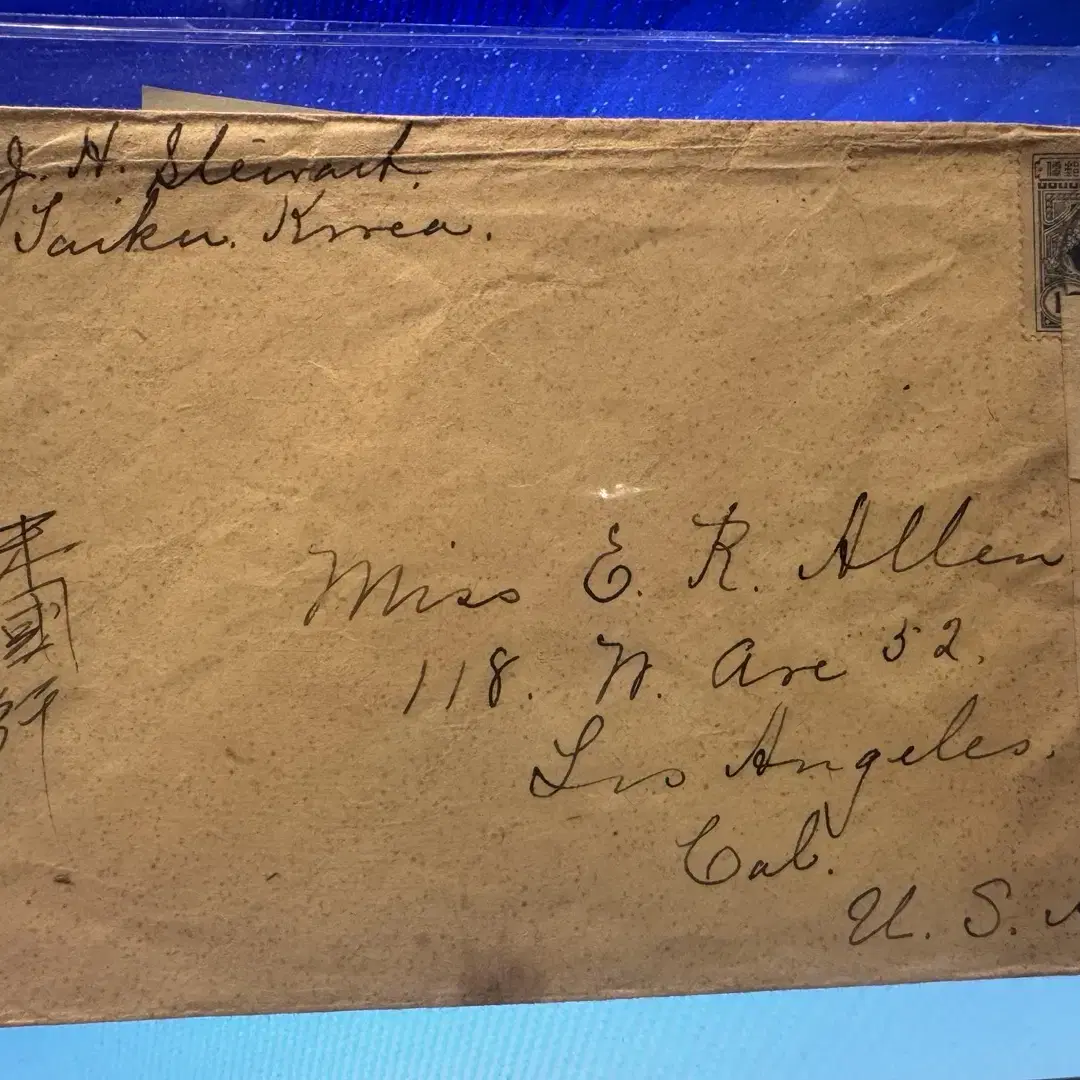 J. H. Stewart.
Taiku. Korea.
Miss E. R. Allen
118. W. Ave 52.
Los Angeles.
Cal.
U. S.
米國
行
1